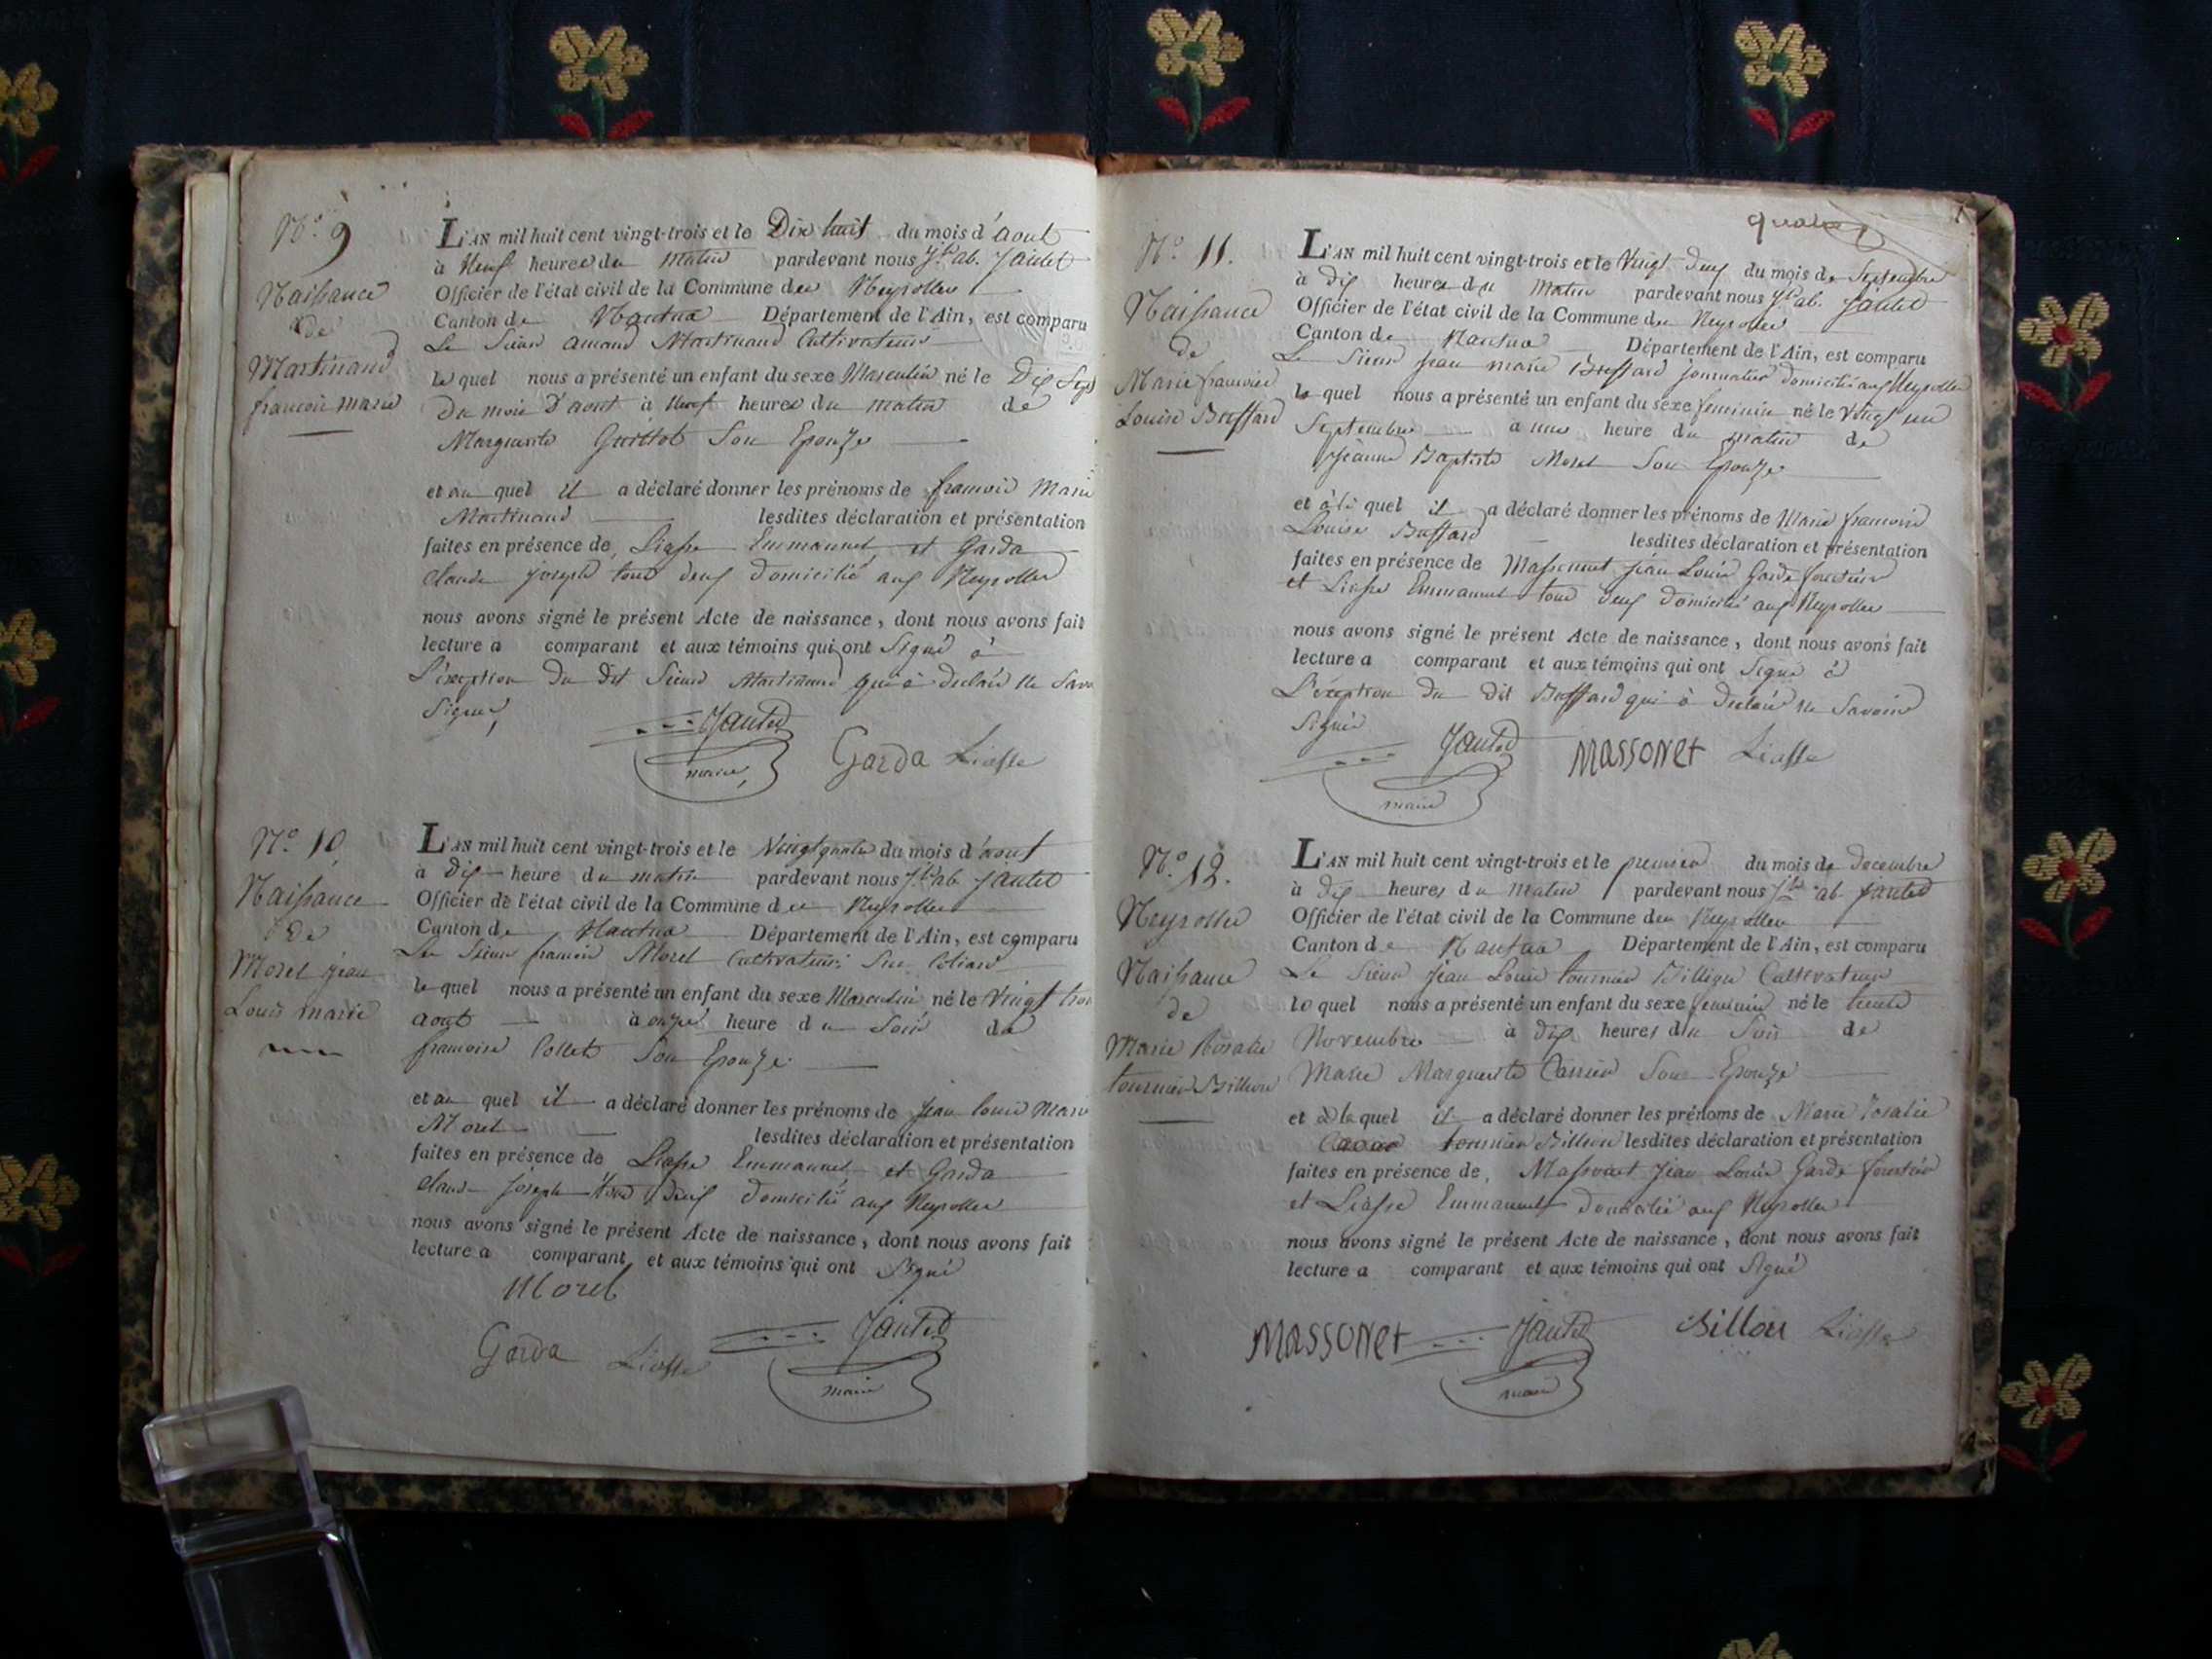 N.o 9
Naissance
de
Martinand
francois marie
L'AN mil huit cent vingt-trois et le Dix huit du mois d'aout
à Neuf heures du matin pardevant nous ab. Jantet
Officier de l'état civil de la Commune des Neyrolles
Canton de Nantua Département de l'Ain, est comparu
Le Sieur amand Martinand Cultivateur
le quel nous a présenté un enfant du sexe Masculin né le Dix Sept
Du mois d'aout à Neuf heures du matin de
Marguerite Guillot Son Epouze
et au quel il a déclaré donner les prénoms de francois Marie
Martinand lesdites déclaration et présentation
faites en présence de Liasse Emmanuel et Garda
claude joseph tous deux domicilié aux Neyrolles
nous avons signé le présent Acte de naissance, dont nous avons fait
lecture a comparant et aux témoins qui ont Signé à
L'éxception du dit Sieur Martinand qui à declaré ne Savoir
Signer,
Jantet
maire
Garda Liasse
N.o 10
Naissance
de
Morel jean
Louis marie
L'AN mil huit cent vingt-trois et le Vingt quatre du mois d'aout
à Dix heure du matin pardevant nous ab. Jantet
Officier de l'état civil de la Commune des Neyrolles
Canton de Nantua Département de l'Ain, est comparu
Le Sieur francois Morel Cultivateur
le quel nous a présenté un enfant du sexe Masculin né le Vingt trois
aout à onze heure du Soir de
francoise Collet Son Epouze
et au quel il a déclaré donner les prénoms de Jean Louis Marie
Morel lesdites déclaration et présentation
faites en présence de Liasse Emmanuel et Garda
claude joseph tous deux domicilié aux Neyrolles
nous avons signé le présent Acte de naissance, dont nous avons fait
lecture a comparant et aux témoins qui ont Signé
Morel
Garda Liasse Jantet
maire
quatre
N.o 11.
Naissance
de
Marie francoise
Louise Buffard
L'AN mil huit cent vingt-trois et le Vingt deux du mois de Septembre
à dix heures du matin pardevant nous ab. Jantet
Officier de l'état civil de la Commune des Neyrolles
Canton de Nantua Département de l'Ain, est comparu
Le Sieur jean marie Buffard journalier domicilié aux Neyrolles
le quel nous a présenté un enfant du sexe feminin né le Vingt un
Septembre a une heure du matin de
Jeanne Baptiste Morel Son Epouze
et à la quel il a déclaré donner les prénoms de Marie francoise
Louise Buffard lesdites déclaration et présentation
faites en présence de Massonnet jean Louis Garde forestier
et Liasse Emmanuel tous deux domicilié aux Neyrolles
nous avons signé le présent Acte de naissance, dont nous avons fait
lecture a comparant et aux témoins qui ont Signé à
L'éxception du dit Buffard qui à declaré ne Savoir
Signer
Jantet
maire
Massonet Liasse
N.o 12.
Neyrolles
Naissance
de
Marie Rosalie
tournier Billion
L'AN mil huit cent vingt-trois et le premier du mois de Decembre
à Dix heures du matin pardevant nous ab. Jantet
Officier de l'état civil de la Commune des Neyrolles
Canton de Nantua Département de l'Ain, est comparu
Le Sieur Jean Louis tournier Billion Cultivateur
le quel nous a présenté un enfant du sexe feminin né le trente
Novembre à dix heures du Soir de
Marie Marguerite Carrier Son Epouze
et à la quel il a déclaré donner les prénoms de Marie Rosalie
tournier Billion lesdites déclaration et présentation
faites en présence de Massonnet Jean Louis Garde forestier
et Liasse Emmanuel domicilié aux Neyrolles
nous avons signé le présent Acte de naissance, dont nous avons fait
lecture a comparant et aux témoins qui ont Signé
Massonet Jantet Billion Liasse
maire